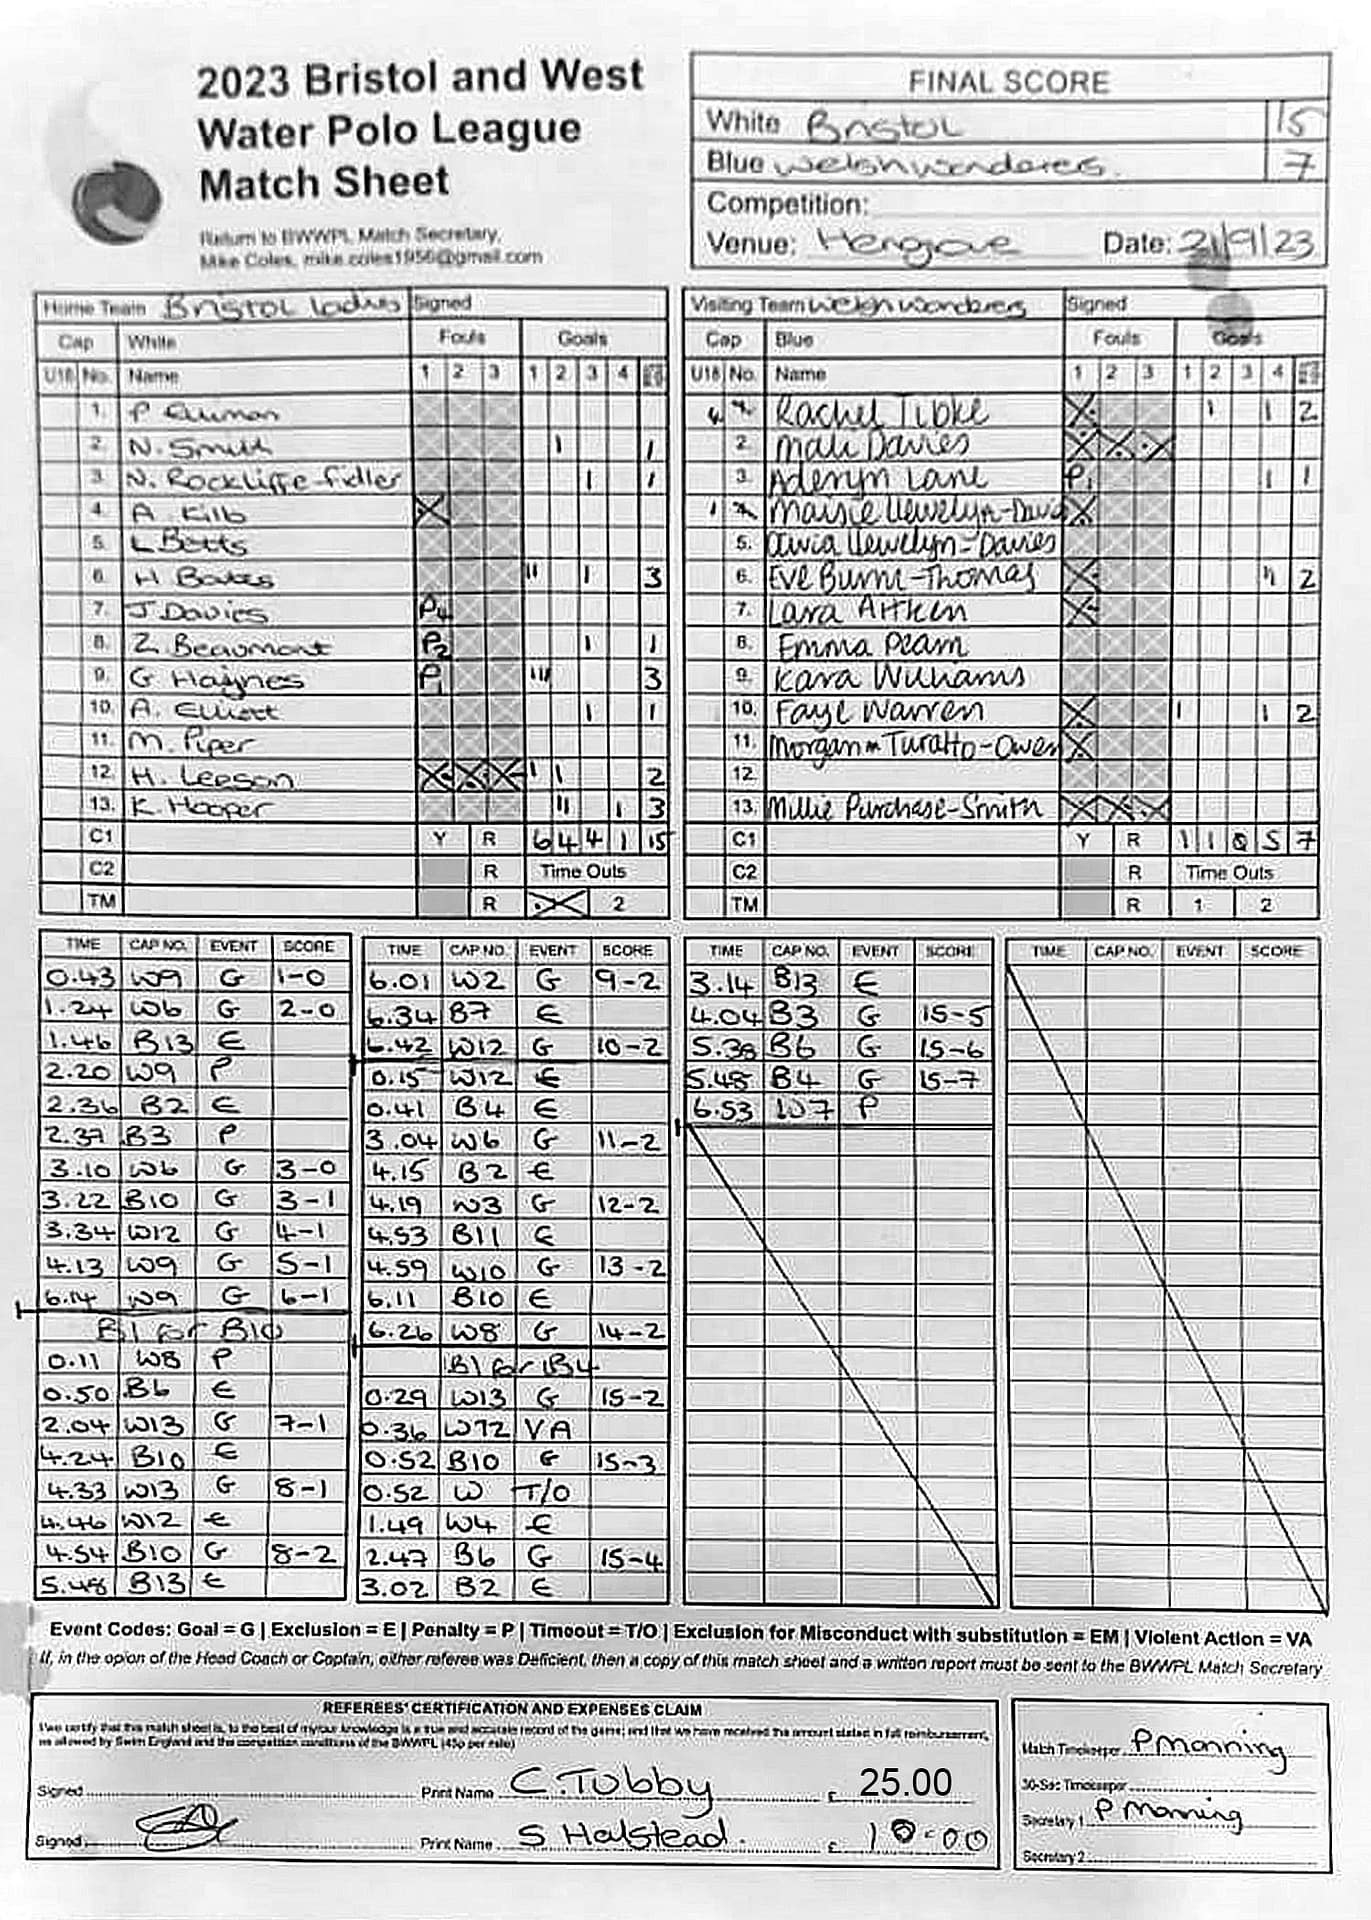 2023 Bristol and West
Water Polo League
Match Sheet
Return to BWWPL Match Secretary,
Mike Coles, mike.coles1956@gmail.com
FINAL SCORE
White Bristol 15
Blue Welsh wanderers. 7
Competition:
Venue: Hengrove Date: 21/9/23
Home Team Bristol Ladies Signed
Cap White Fouls Goals
U18 No. Name 1 2 3 1 2 3 4
1. P
2. N. Smith 1 1
3. N. Rockliffe-Fidler 1 1
4. A. Kilb X
5. L Betts
6. H 11 1 3
7. J Davies P4
8. Z. Beaumont P2 1 1
9. G Haynes P1 111 3
10. A. Elliott 1 1
11. M. Piper
12. H. Leeson X X X 1 1 2
13. K. Hooper 11 1 3
C1 Y R 6 4 4 1 15
C2 R Time Outs
TM R 2
Visiting Team Welsh wanderers Signed
Cap Blue Fouls Goals
U18 No. Name 1 2 3 1 2 3 4
Rachel X 1 1 2
2. Mali Davies X X X
3. Aderyn Lane P1 1 1
Maisie Llewelyn-Davies X
5. Olivia Llewelyn-Davies
6. Eve Burm-Thomas X 11 2
7. Lara Aitken X
8. Emma Pearn
9. Kara Williams
10. Faye Warren X 1 1 2
11. Morgan Turatto-Owen X
12.
13. Millie Purchase-Smith X X X
C1 Y R 1 1 0 5 7
C2 R Time Outs
TM R 1 2
TIME CAP NO. EVENT SCORE
0.43 W9 G 1-0
1.24 W6 G 2-0
1.46 B13 E
2.20 W9 P
2.36 B2 E
2.37 B3 P
3.10 W6 G 3-0
3.22 B10 G 3-1
3.34 W12 G 4-1
4.13 W9 G 5-1
6.14 W9 G 6-1
B1 for B10
0.11 W8 P
0.50 B6 E
2.04 W13 G 7-1
4.24 B10 E
4.33 W13 G 8-1
4.46 W12 E
4.54 B10 G 8-2
5.48 B13 E
TIME CAP NO. EVENT SCORE
6.01 W2 G 9-2
6.34 B7 E
6.42 W12 G 10-2
0.15 W12 E
0.41 B4 E
3.04 W6 G 11-2
4.15 B2 E
4.19 W3 G 12-2
4.53 B11 E
4.59 W10 G 13-2
6.11 B10 E
6.26 W8 G 14-2
B1 for B4
0.29 W13 G 15-2
0.36 W12 VA
0.52 B10 G 15-3
0.52 W T/O
1.49 W4 E
2.47 B6 G 15-4
3.02 B2 E
TIME CAP NO. EVENT SCORE
3.14 B13 E
4.04 B3 G 15-5
5.38 B6 G 15-6
5.48 B4 G 15-7
6.53 W7 P
TIME CAP NO. EVENT SCORE
Event Codes: Goal = G | Exclusion = E | Penalty = P | Timeout = T/O | Exclusion for Misconduct with substitution = EM | Violent Action = VA
If, in the opion of the Head Coach or Captain, either referee was Deficient, then a copy of this match sheet and a written report must be sent to the BWWPL Match Secretary
REFEREES' CERTIFICATION AND EXPENSES CLAIM
I/we certify that this match sheet is, to the best of my/our knowledge is a true and accurate record of the game; and that we have received the amount stated in full reimbursement,
as allowed by Swim England and the competition conditions of the BWWPL (45p per mile)
Signed Print Name C. Tubby £ 25.00
Signed Print Name S Halstead. £ 10.00
Match Timekeeper P Manning
30-Sec Timekeeper
Secretary 1 P Manning
Secretary 2